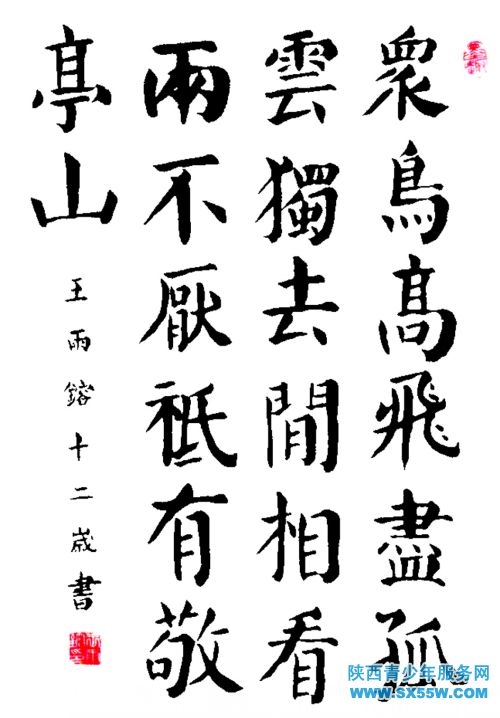 衆鳥高飛盡孤
雲獨去閒相看
兩不厭祗有敬
亭山
王雨鎔十二歲書
陕西青少年服务网
www.sx55w.com